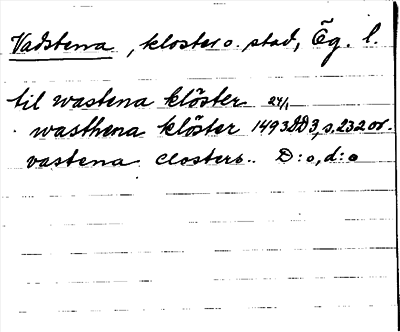 Vadstena, kloster o. stad, Ög. l.
til wastena klöster 24/1
wasthena klöster 1493 DD3, s. 232 or.
vastena closters.. D:o, d:o